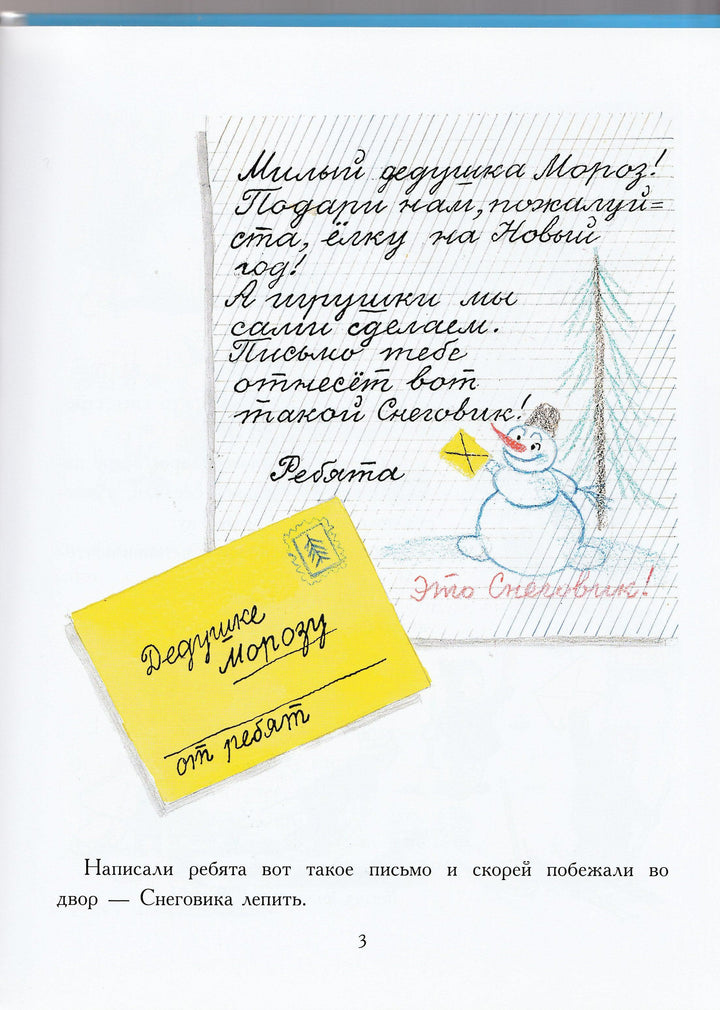 Милый дедушка Мороз!
Подари нам, пожалуй=
ста, ёлку на Новый
год!
А игрушки мы
сами сделаем.
Письмо тебе
отнесёт вот
такой Снеговик!
Ребята
Это Снеговик!
Дедушке
Морозу
от ребят
Написали ребята вот такое письмо и скорей побежали во
двор — Снеговика лепить.
3